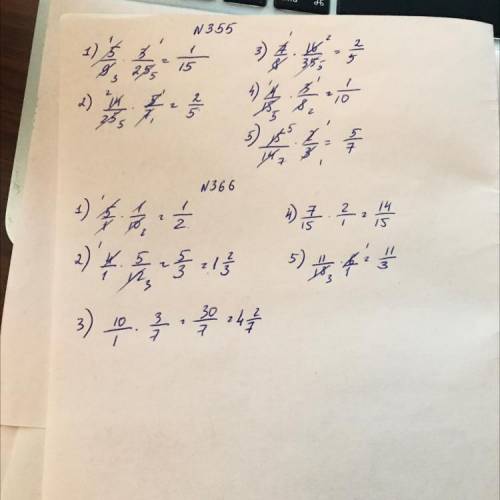 N355
1) 5/9 · 3/25 = 1/15
2) 14/25 · 5/7 = 2/5
3) 7/8 · 16/35 = 2/5
4) 4/15 · 3/8 = 1/10
5) 15/14 · 2/3 = 5/7
N366
1) 5/1 · 1/10 = 1/2
2) 4/1 · 5/12 = 5/3 = 1 2/3
3) 10/1 · 3/7 = 30/7 = 4 2/7
4) 7/15 · 2/1 = 14/15
5) 11/18 · 6/1 = 11/3